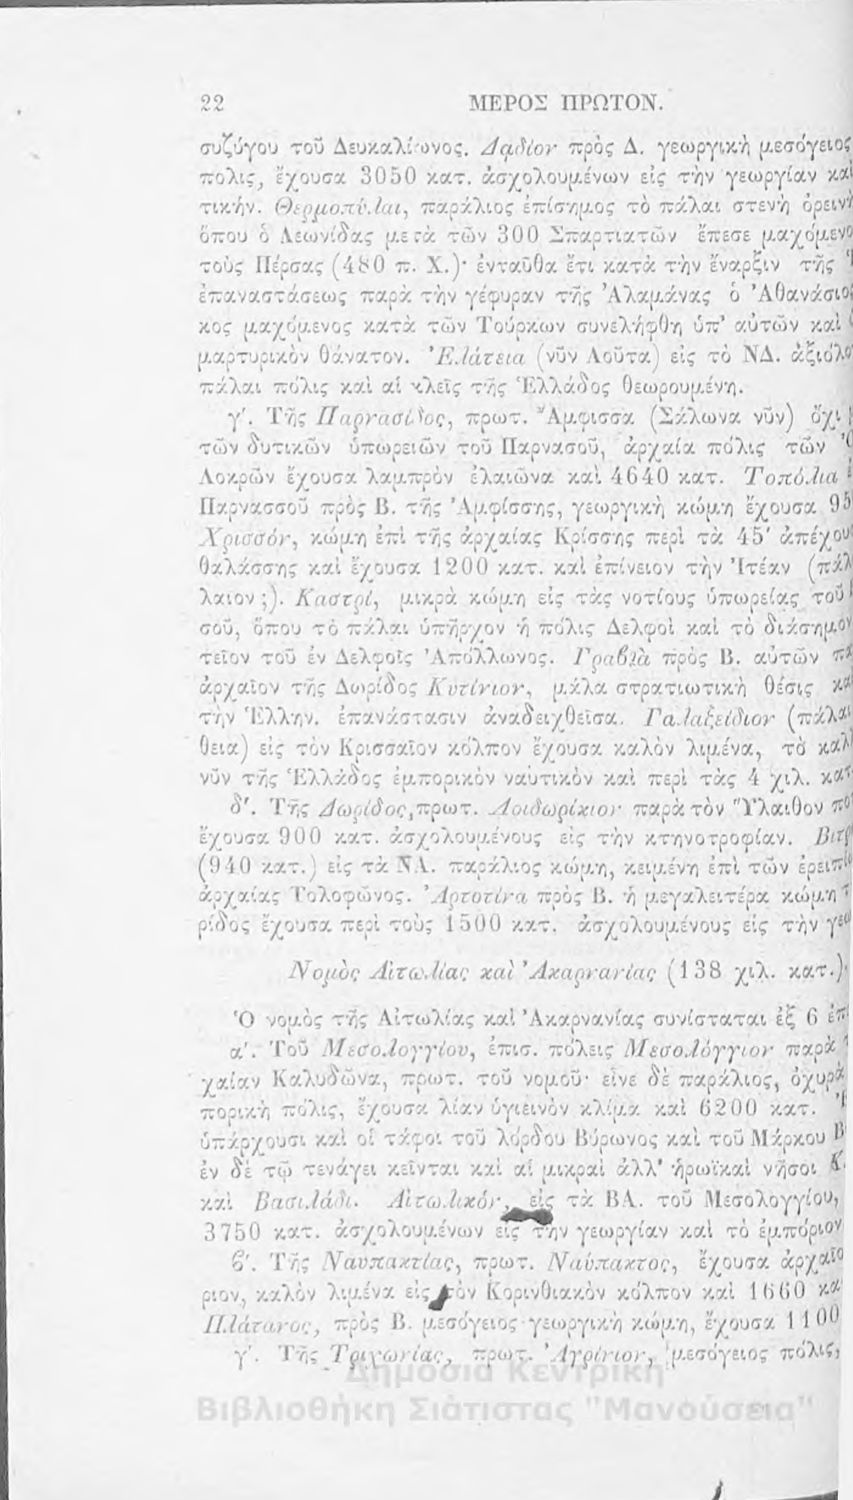 22 ΜΕΡΟΣ ΠΡΩΤΟΝ.
συζύγου τοῦ Δευκαλίωνος. Δαδίον πρὸς Δ. γεωργικὴ μεσόγειος
πόλις, ἔχουσα 3050 κατ. ἀσχολουμένων εἰς τὴν γεωργίαν καὶ
τικήν. Θερμοπύλαι, παράλιος ἐπίσημος τὸ πάλαι στενὴ ὀρεινὴ
ὅπου ὁ Λεωνίδας μετὰ τῶν 300 Σπαρτιατῶν ἔπεσε μαχόμενο
τοὺς Πέρσας (480 π. Χ.)· ἐνταῦθα ἔτι κατὰ τὴν ἔναρξιν τῆς
ἐπαναστάσεως παρὰ τὴν γέφυραν τῆς Ἀλαμάνας ὁ Ἀθανάσιος
κος μαχόμενος κατὰ τῶν Τούρκων συνελήφθη ὑπ' αὐτῶν καὶ
μαρτυρικὸν θάνατον. Ἐλάτεια (νῦν Λοῦτα) εἰς τὸ ΝΔ. ἀξιόλο
πάλαι πόλις καὶ αἱ κλεῖς τῆς Ἑλλάδος θεωρουμένη.
γ′. Τῆς Παρνασίδος, πρωτ. Ἄμφισσα (Σάλωνα νῦν) ὄχι
τῶν δυτικῶν ὑπωρειῶν τοῦ Παρνασοῦ, ἀρχαία πόλις τῶν
Λοκρῶν ἔχουσα λαμπρὸν ἐλαιῶνα καὶ 4640 κατ. Τοπόλια
Παρνασσοῦ πρὸς Β. τῆς Ἀμφίσσης, γεωργικὴ κώμη ἔχουσα 95
Χρισσόν, κώμη ἐπὶ τῆς ἀρχαίας Κρίσσης περὶ τὰ 45′ ἀπέχου
θαλάσσης καὶ ἔχουσα 1200 κατ. καὶ ἐπίνειον τὴν Ἰτέαν (πάλ
λαιον;). Καστρί, μικρὰ κώμη εἰς τὰς νοτίους ὑπωρείας τοῦ
σοῦ, ὅπου τὸ πάλαι ὑπῆρχον ἡ πόλις Δελφοὶ καὶ τὸ διάσημον
τεῖον τοῦ ἐν Δελφοῖς Ἀπόλλωνος. Γραβιὰ πρὸς Β. αὐτῶν πα
ἀρχαῖον τῆς Δωρίδος Κυτίνιον, μάλα στρατιωτικὴ θέσις κα
τὴν Ἑλλην. ἐπανάστασιν ἀναδειχθεῖσα. Γαλαξείδιον (πάλαι
θεια) εἰς τὸν Κρισσαῖον κόλπον ἔχουσα καλὸν λιμένα, τὸ καλ
νῦν τῆς Ἑλλάδος ἐμπορικὸν ναυτικὸν καὶ περὶ τὰς 4 χιλ. κατ
δ′. Τῆς Δωρίδος, πρωτ. Λοιδωρίκιον παρὰ τὸν Ὕλαιθον πο
ἔχουσα 900 κατ. ἀσχολουμένους εἰς τὴν κτηνοτροφίαν. Βιτρ
(940 κατ.) εἰς τὰ ΝΑ. παράλιος κώμη, κειμένη ἐπὶ τῶν ἐρειπίω
ἀρχαίας Τολοφῶνος. Ἀρτοτίνα πρὸς Β. ἡ μεγαλειτέρα κώμη τ
ρίδος ἔχουσα περὶ τοὺς 1500 κατ. ἀσχολουμένους εἰς τὴν γεω
Νομὸς Αἰτωλίας καὶ Ἀκαρνανίας (138 χιλ. κατ.)·
Ὁ νομὸς τῆς Αἰτωλίας καὶ Ἀκαρνανίας συνίσταται ἐξ 6 ἐπ
α′. Τοῦ Μεσολογγίου, ἐπισ. πόλεις Μεσολόγγιον παρὰ
χαίαν Καλυδῶνα, πρωτ. τοῦ νομοῦ· εἶνε δὲ παράλιος, ὀχυρὰ
πορικὴ πόλις, ἔχουσα λίαν ὑγιεινὸν κλίμα καὶ 6200 κατ.
ὑπάρχουσι καὶ οἱ τάφοι τοῦ λόρδου Βύρωνος καὶ τοῦ Μάρκου Β
ἐν δὲ τῷ τενάγει κεῖνται καὶ αἱ μικραὶ ἀλλ' ἡρωϊκαὶ νῆσοι Κ
καὶ Βασιλάδι. Αἰτωλικόν, εἰς τὰ ΒΑ. τοῦ Μεσολογγίου,
3750 κατ. ἀσχολουμένων εἰς τὴν γεωργίαν καὶ τὸ ἐμπόριον
β′. Τῆς Ναυπακτίας, πρωτ. Ναύπακτος, ἔχουσα ἀρχαῖο
ριον, καλὸν λιμένα εἰς τὸν Κορινθιακὸν κόλπον καὶ 1660 κα
Πλάτανος, πρὸς Β. μεσόγειος γεωργικὴ κώμη, ἔχουσα 1100
γ′. Τῆς Τριχωνίας, πρωτ. Ἀγρίνιον, μεσόγειος πόλις,
Δημόσια Κεντρική
Βιβλιοθήκη Σιάτιστας "Μανούσεια"